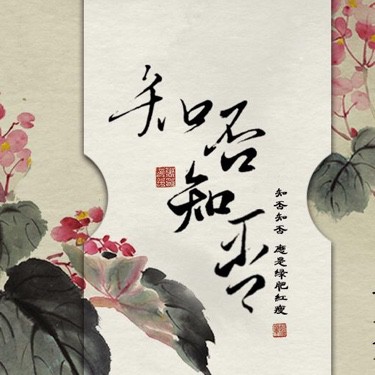 知否
知否
知否知否 應是绿肥红瘦